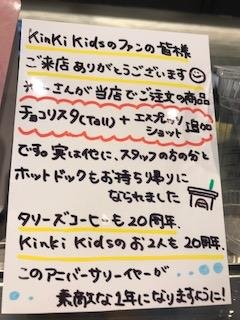 KinKi Kidsのファンの皆様
ご来店ありがとうございます
光一さんが当店でご注文の商品
チョコリスタ(Tall) + エスプレッソショット追加
です。実は他に、スタッフの方の分と
ホットドックもお持ち帰りに
なられました
タリーズコーヒーも20周年、
KinKi Kidsのお2人も20周年、
このアニバーサリーイヤーが
素敵な1年になりますように!